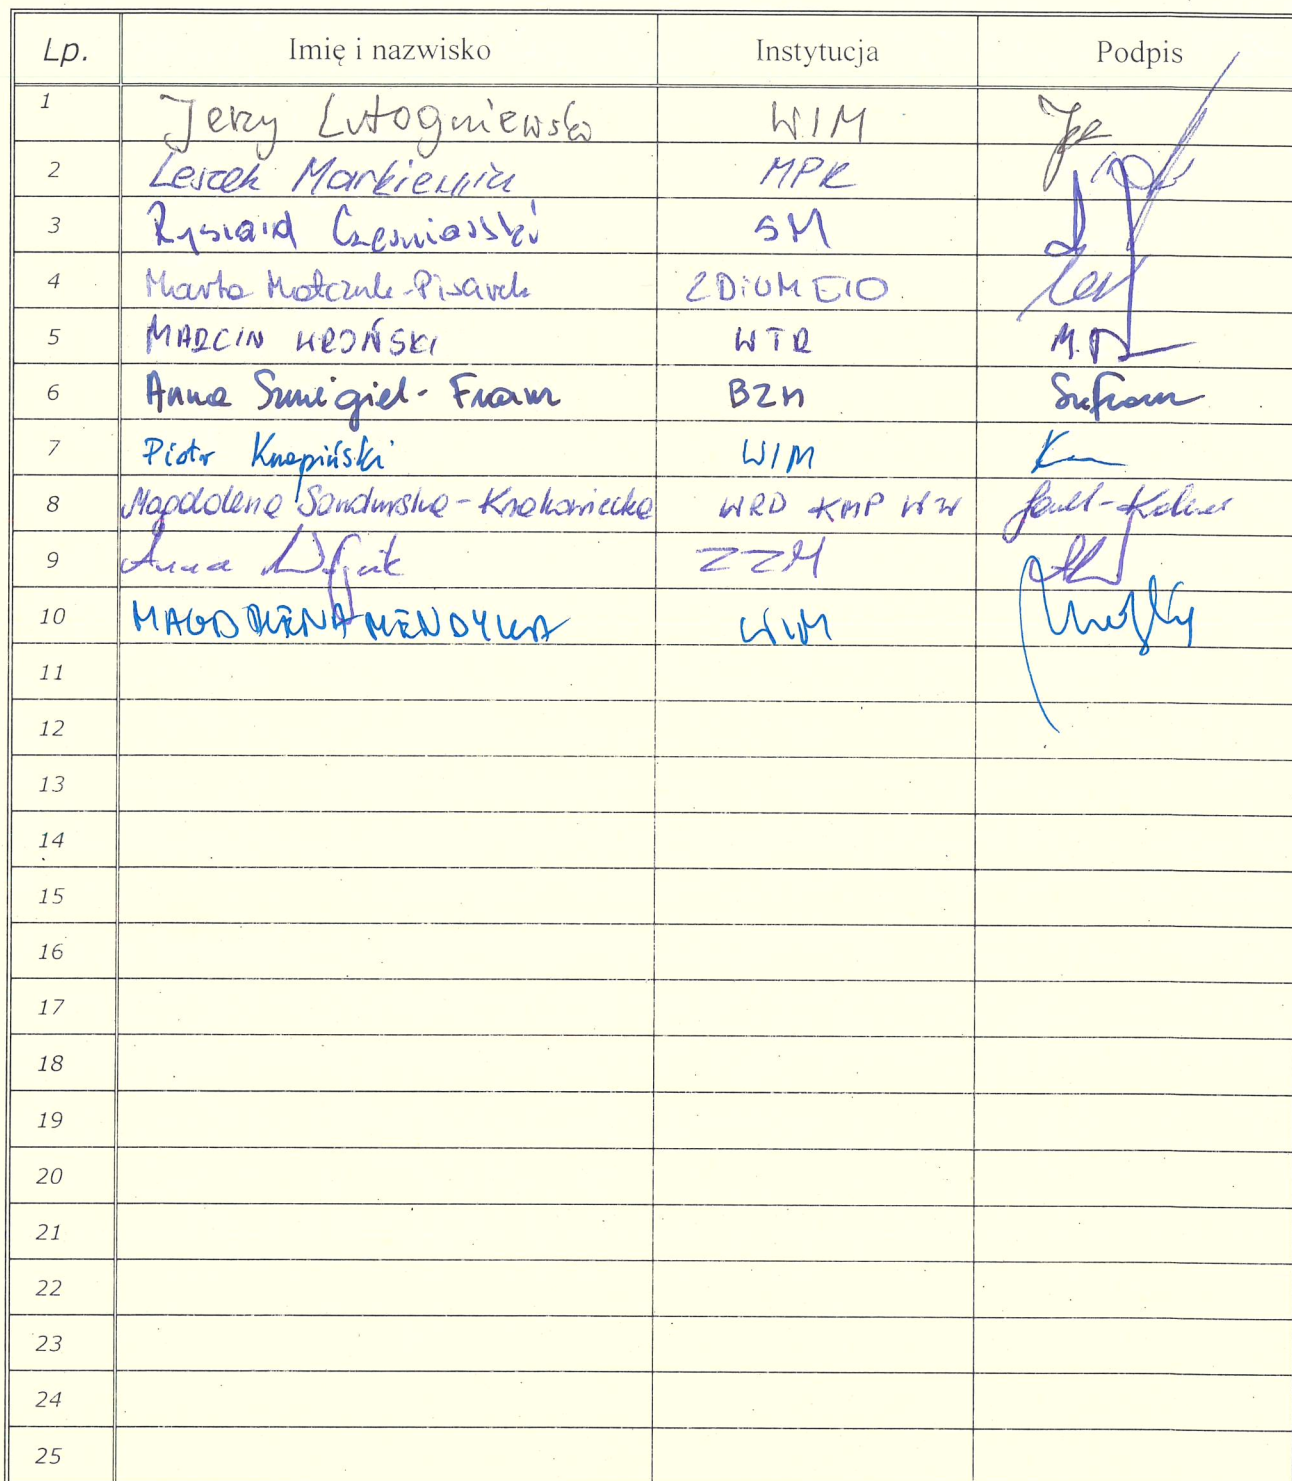 Lp. Imię i nazwisko Instytucja Podpis
1 Jerzy WIM
2 Leszek Markiewicz MPK
3 Ryszard SM
4 Marta Matczuk-Pisarek ZDIUM EIO
5 MARCIN WROŃSKI WTR
6 Anna Szmigiel-Franz BZM
7 Piotr Knapiński WIM K
8 Magdalena Sandurska-Krakowiecka WRD KMP WW
9 Anna Wójcik ZZM
10 MAGDALENA MENDYKA WIM
11
12
13
14
15
16
17
18
19
20
21
22
23
24
25